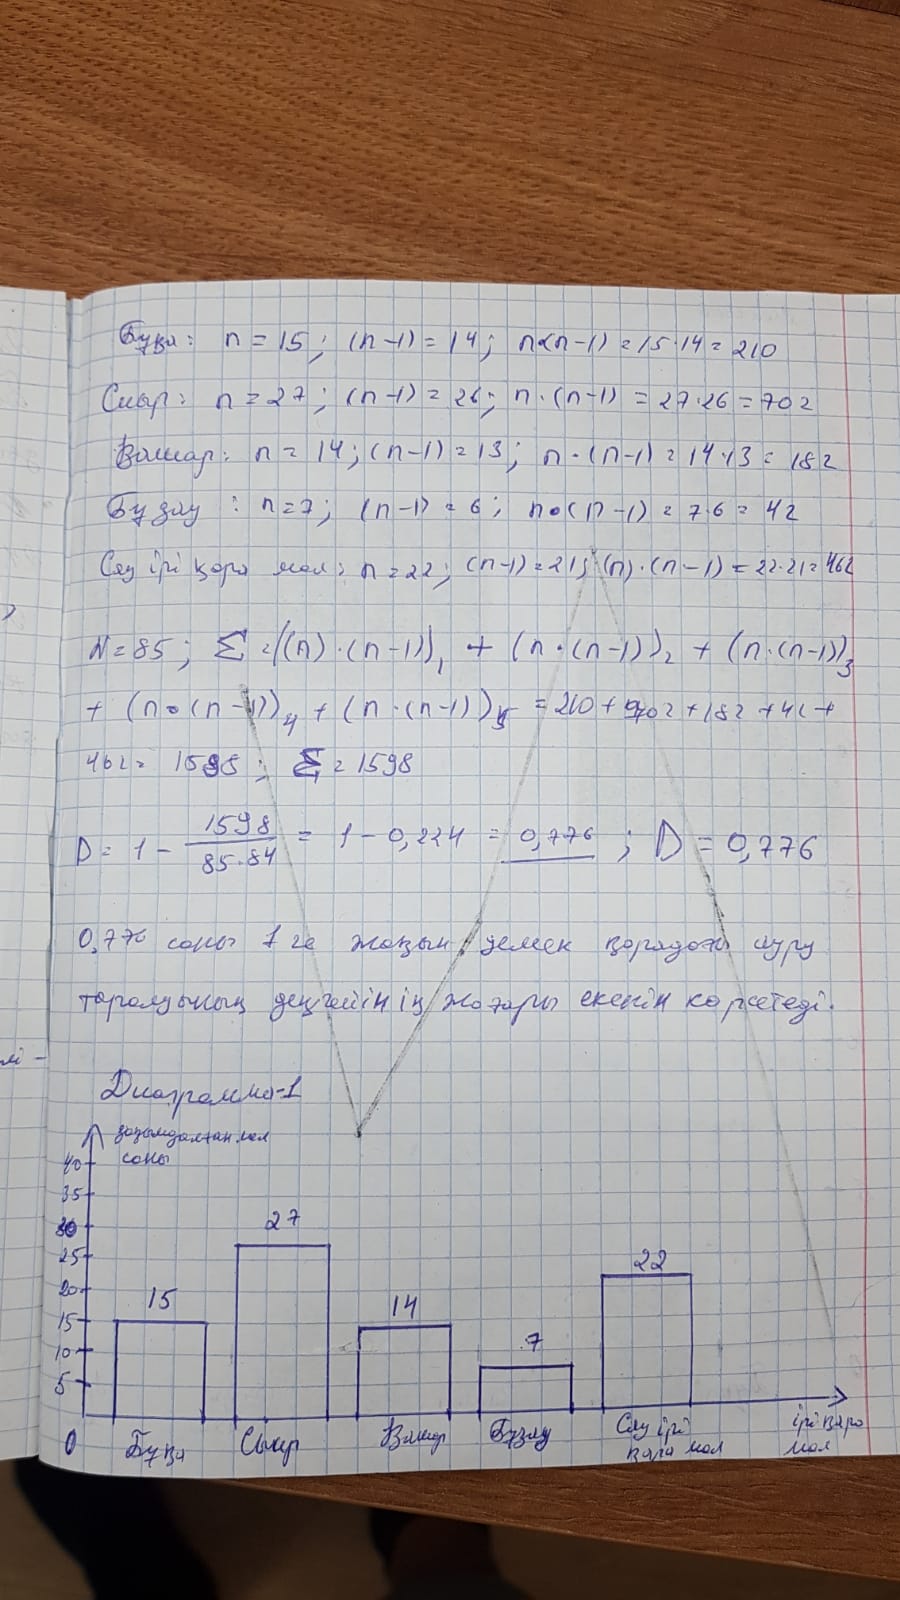 Бұқа: n = 15; (n-1) = 14; n·(n-1) = 15·14 = 210
Сиыр: n = 27; (n-1) = 26; n·(n-1) = 27·26 = 702
Қашар: n = 14; (n-1) = 13; n·(n-1) = 14·13 = 182
Бұзау: n=7; (n-1) = 6; n·(n-1) = 7·6 = 42
Сау ірі қара мал: n = 22; (n-1) = 21; (n)·(n-1) = 22·21 = 462
N = 85; Σ = ((n)·(n-1))₁ + (n·(n-1))₂ + (n·(n-1))₃
+ (n·(n-1))₄ + (n·(n-1))₅ = 210 + 702 + 182 + 42 +
462 = 1598; Σ = 1598
D = 1 - 1598/85·84 = 1 - 0,224 = 0,776; D = 0,776
0,776 саны 1 ге жақын, демек қорадағы ауру
таралуының деңгейінің жоғары екенін көрсетеді.
Диаграмма-1
зақымдалған мал
саны
40
35
30
25
20
15
10
5
0
15
27
14
7
22
Бұқа
Сиыр
Қашар
Бұзау
Сау ірі
қара мал
ірі қара
мал